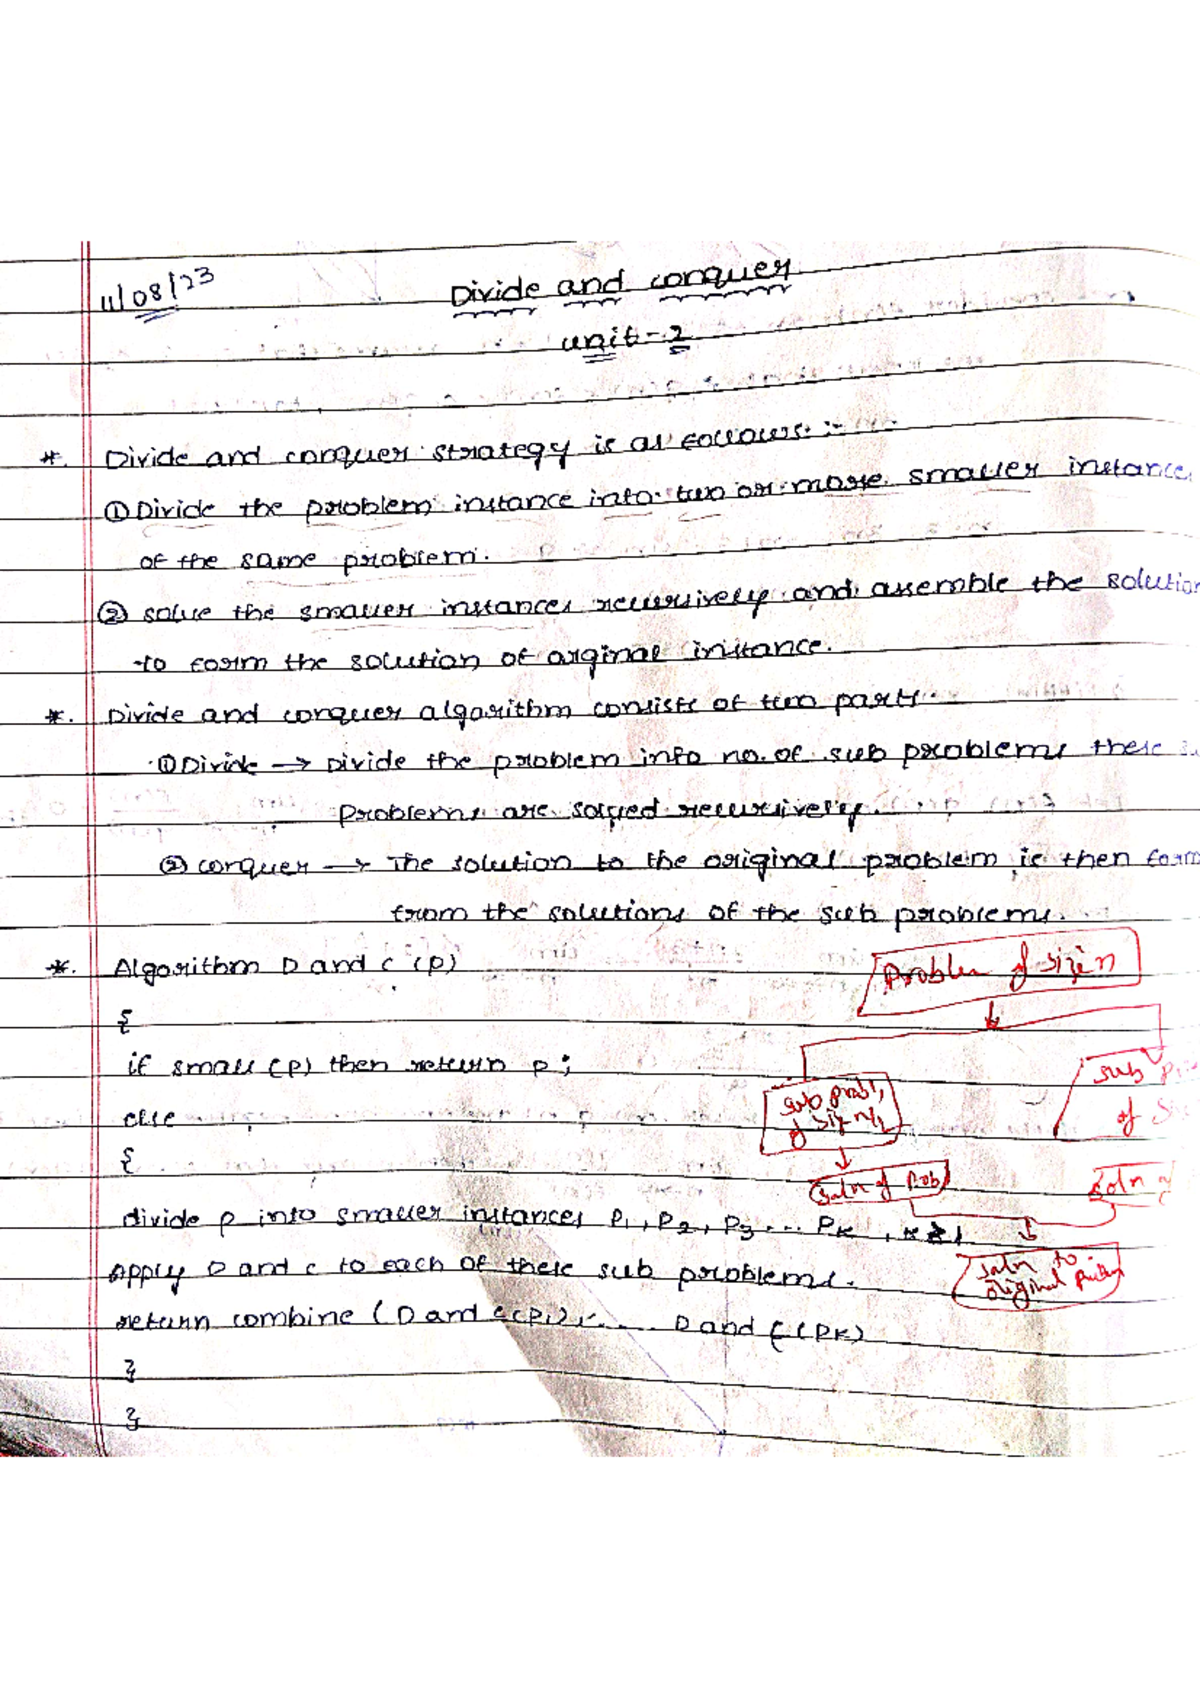 11/08/23
Divide and conquer
unit-2
*. Divide and conquer strategy is as follows:-
① Divide the problem instance into two or more smaller instance
of the same problem.
② solve the smaller instances recursively and assemble the solution
to form the solution of orginal instance.
*. Divide and conquer algorithm consists of two parts.
① Divide → Divide the problem into no. of sub problems these
problems are solved recursively.
② conquer → The solution to the original problem is then form
from the solutions of the sub problems.
*. Algorithm D and C (P)
{
if small (P) then return P;
else
{
divide P into smaller instances P1, P2, P3 ... PK , K ≥ 1
Apply D and C to each of these sub problems.
return combine (D and C(P1), .... D and C (PK)
}
}
Problem of size n
sub probl,
of siz n/2
sub
of
soln of Prob
soln
soln to
original problem